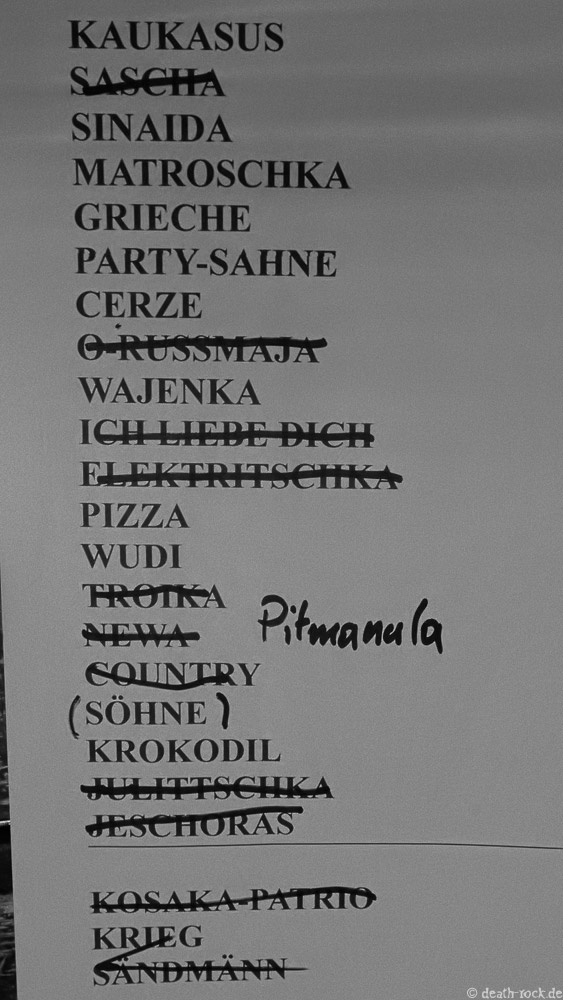 KAUKASUS
SASCHA
SINAIDA
MATROSCHKA
GRIECHE
PARTY-SAHNE
CERZE
O-RUSSMAJA
WAJENKA
ICH LIEBE DICH
ELEKTRITSCHKA
PIZZA
WUDI
TROIKA
NEWA Pitmanula
COUNTRY
(SÖHNE)
KROKODIL
JULITTSCHKA
JESCHORAS
KOSAKA-PATRIO
KRIEG
SÄNDMÄNN
© death-rock.de